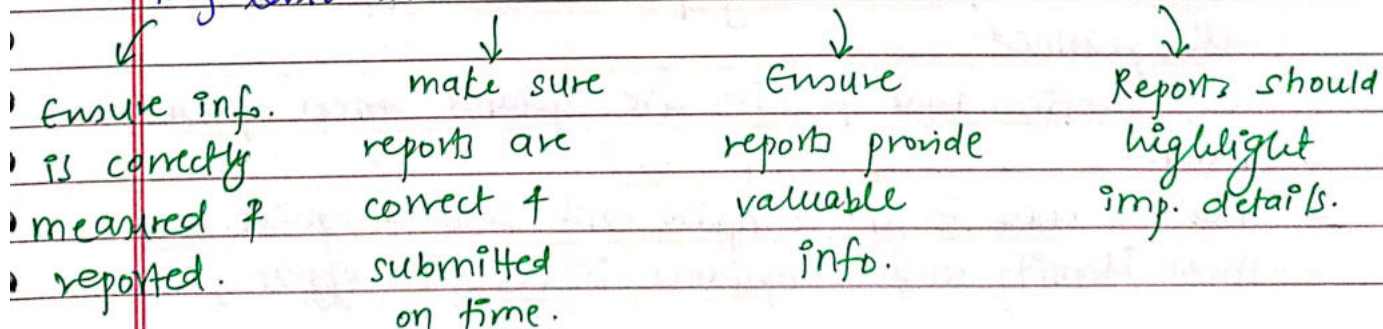 Ensure info.
is correctly
measured &
reported.
make sure
reports are
correct &
submitted
on time.
Ensure
reports provide
valuable
info.
Reports should
highlight
imp. details.